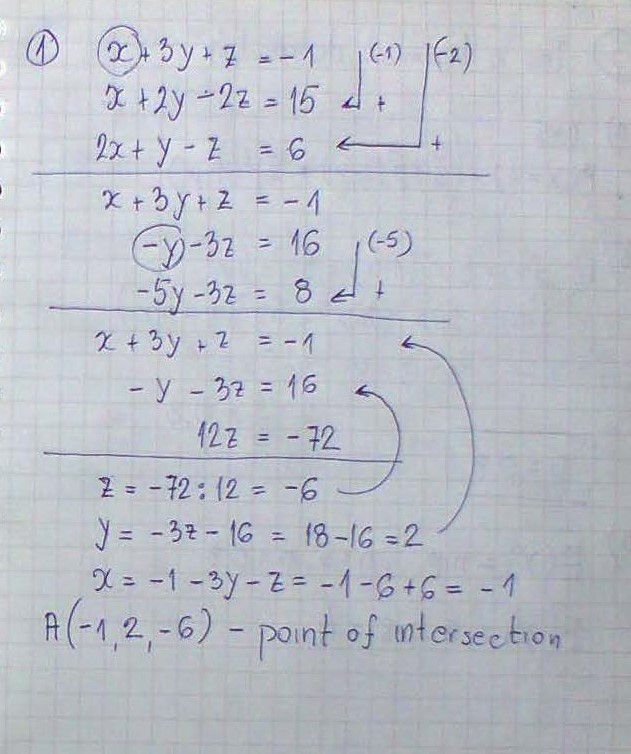 ① x + 3y + z = -1 (-1) (-2)
x + 2y - 2z = 15 +
2x + y - z = 6 +
x + 3y + z = -1
-y - 3z = 16 (-5)
-5y - 3z = 8 +
x + 3y + z = -1
- y - 3z = 16
12z = -72
z = -72 : 12 = -6
y = -3z - 16 = 18 - 16 = 2
x = -1 - 3y - z = -1 - 6 + 6 = -1
A(-1, 2, -6) - point of intersection